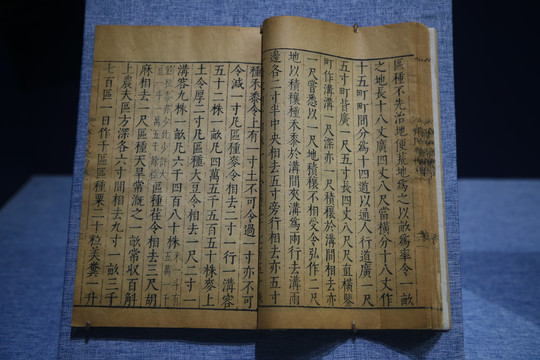 區種不先治地便荒地爲之以畝爲率令一畝
之地長十八丈廣四丈八尺當橫分十八丈作
十五町町間分爲十四道以通人行道廣一尺
五寸町皆廣一尺五寸長四丈八尺尺直橫鑿
町作溝溝一尺深亦一尺積穰於溝間相去亦
一尺嘗悉以一尺地積穰不相受令弘作二尺
地以積穰種禾黍於溝間夾溝爲兩行去溝兩
邊各二寸半中央相去五寸旁行相去亦五寸
種禾黍令上有一寸土不可令過一寸亦不可
令減一寸凡區種麥令相去二寸一行一溝容
五十二株一畝凡四萬五千五百五十株麥上
土令厚二寸凡區種大豆令相去一尺二寸一
溝容九株一畝凡六千四百八十株
區種荏令相去三尺胡
麻相去一尺區種天旱常溉之一畝常收百斛
上農夫區方深各六寸間相去九寸一畝三千
七百區一日作千區區種粟二十粒美糞一升